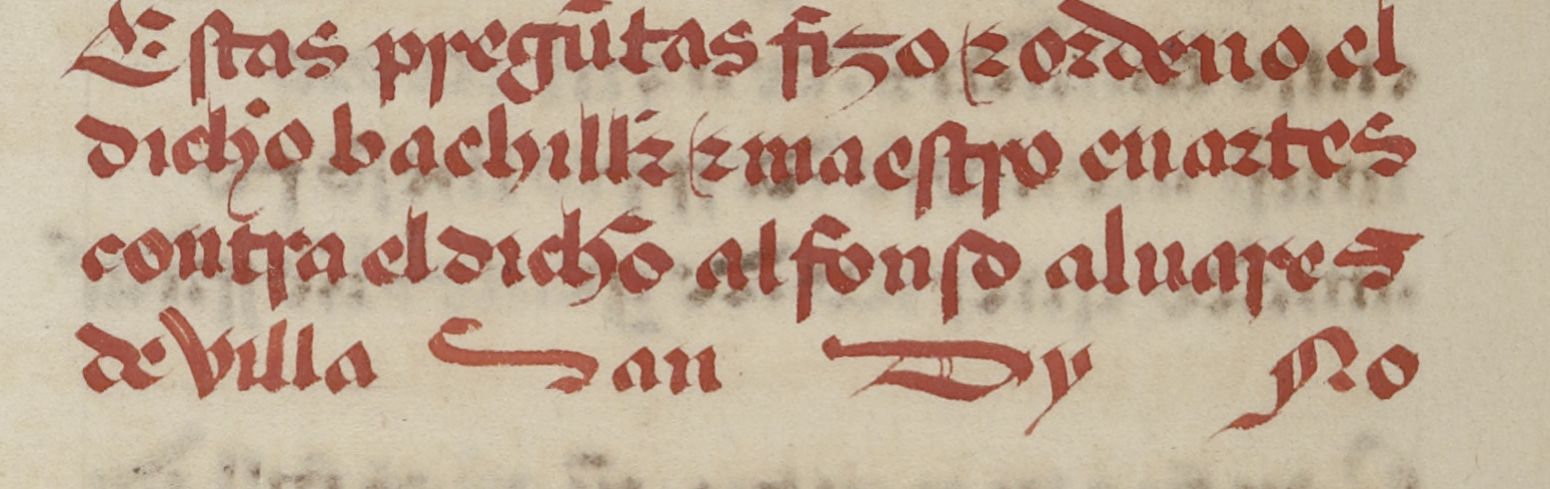 Estas pregũtas fizo ⁊ ordeno el
dicħo bachillr̃ ⁊ maestro en artes
contra el dicħo alfonso aluares
de villa San Dy No